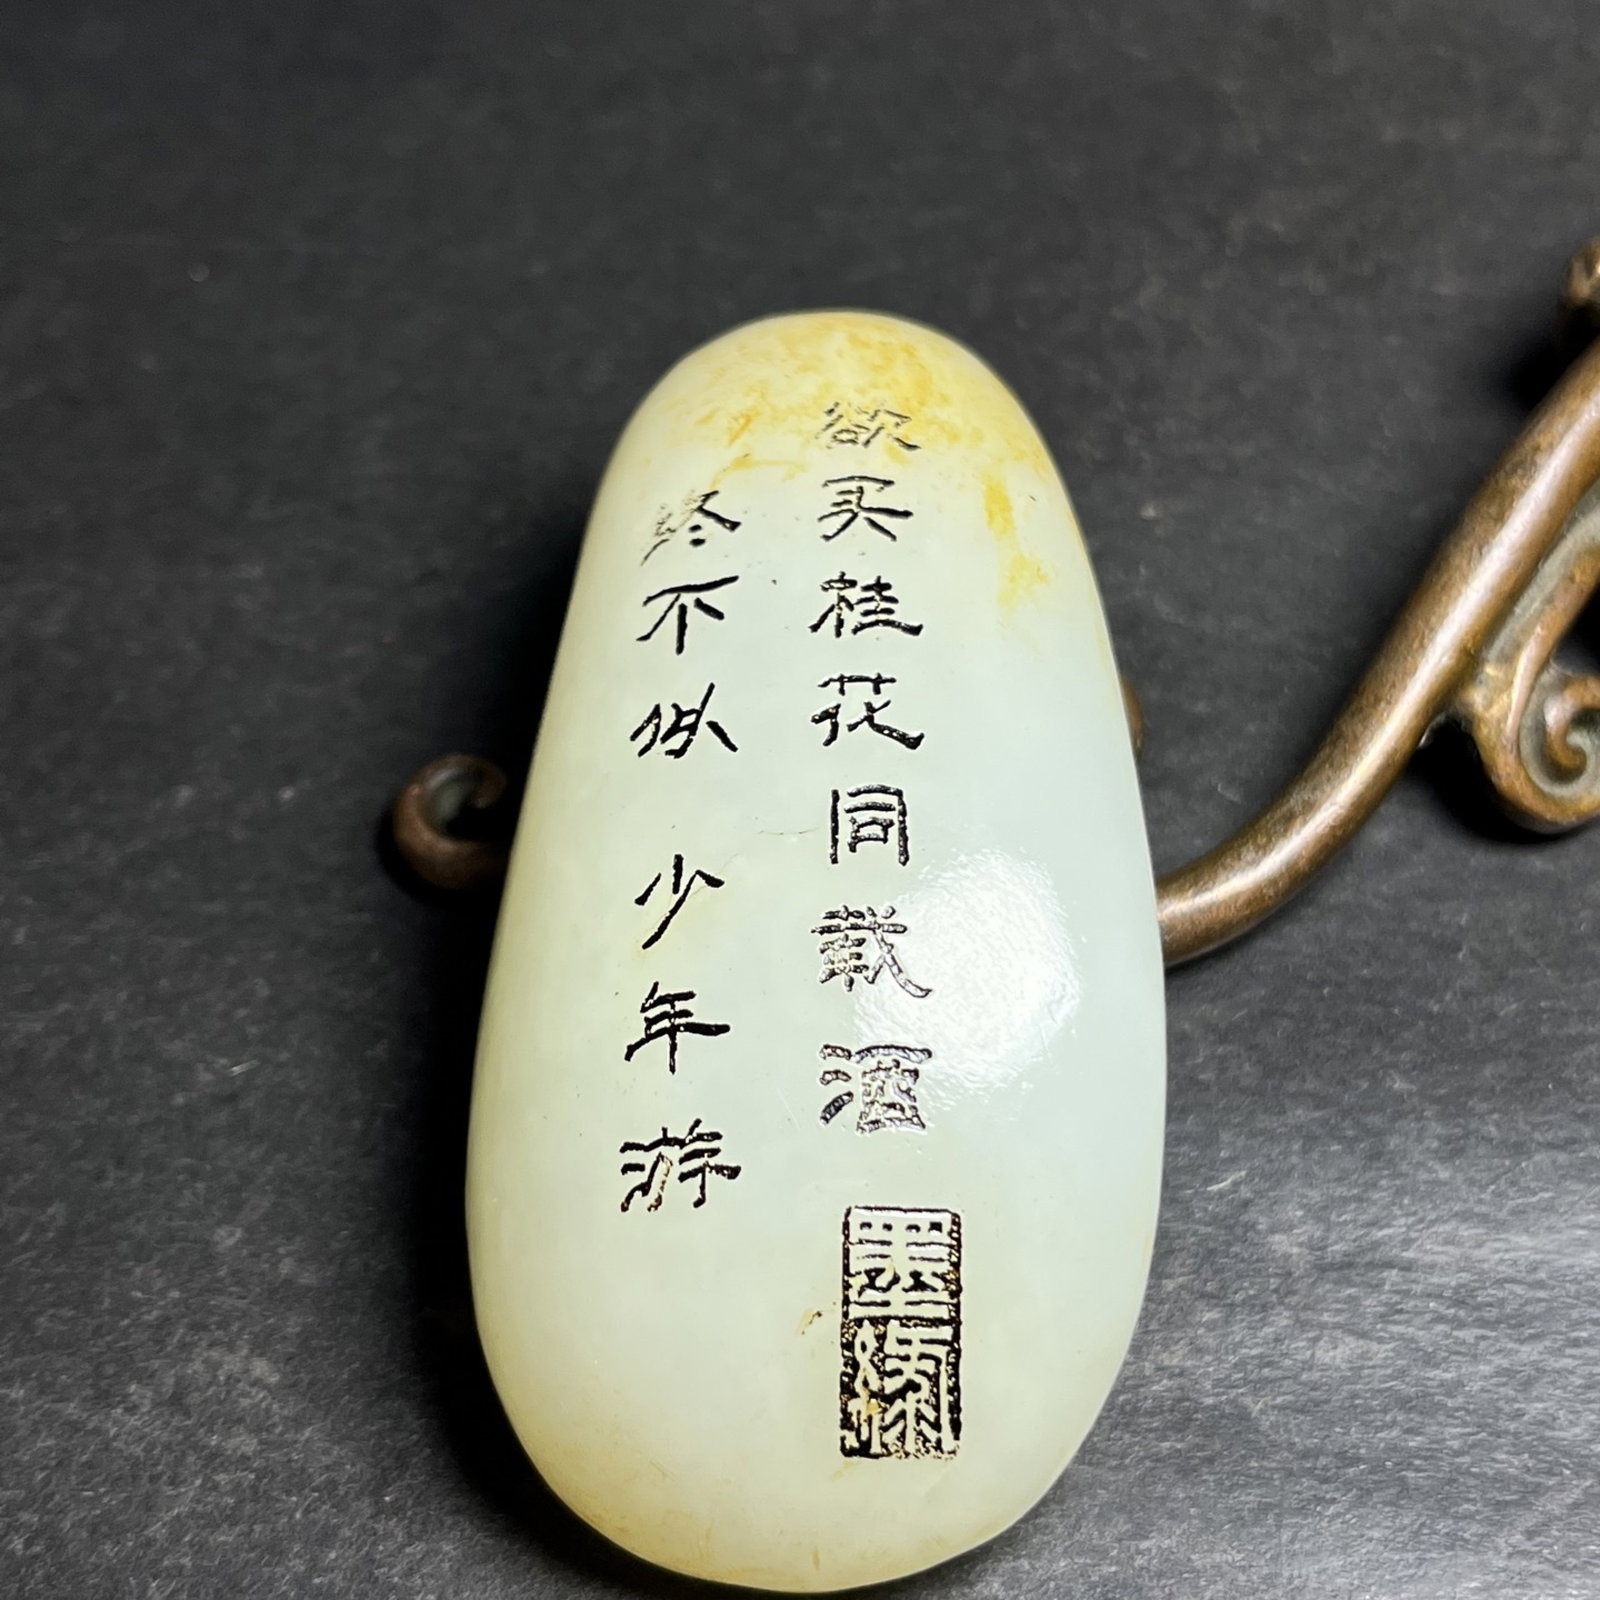 欲买桂花同载酒
终不似少年游
墨缘